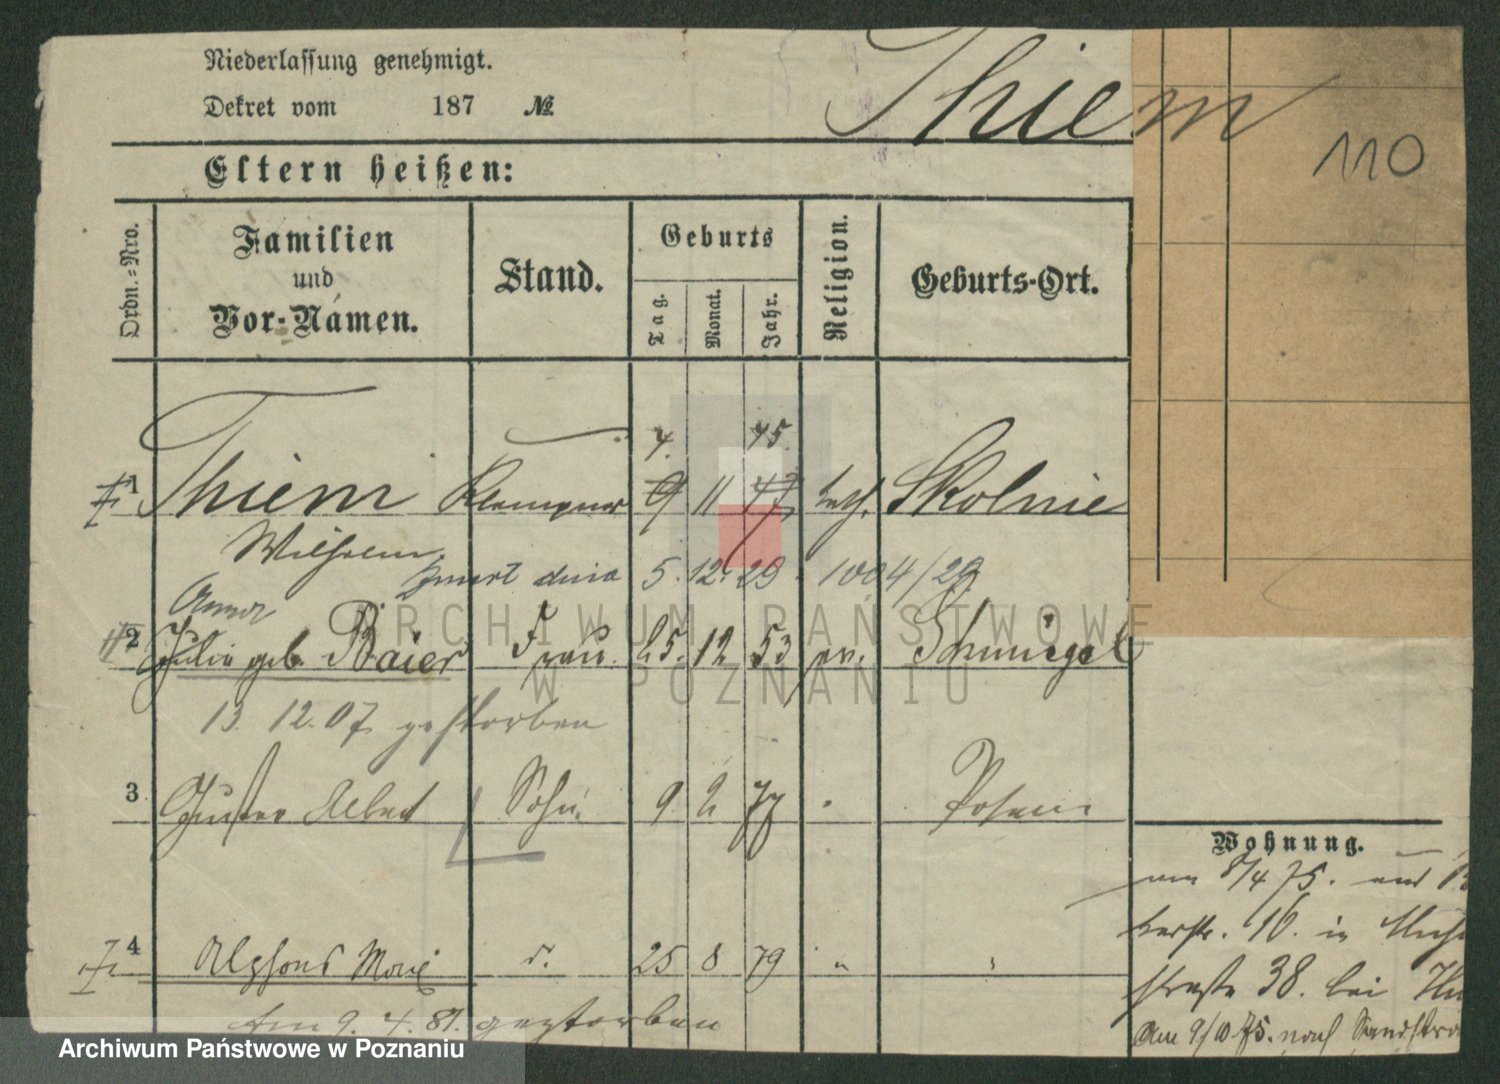 Niederlassung genehmigt.
Dekret vom 187 №.
Thiem
110
Eltern heißen:
Ordn.-Nro.
Familien
und
Vor-Namen.
Stand.
Geburts
Tag.
Monat.
Jahr.
Religion.
Geburts-Ort.
7. 45.
1 Thiem Klempner 9 11 47 kath. Skolnie
Wilhelm
zmarł dnia 5. 12. 29. 1004/29
Anna
2 Julie geb. Baier Frau 25. 12 53 ev. Schmiegel
13. 12. 07. gestorben
3 Gustav Albert Sohn 9 2 77 " Posen
4 Alphons Max d. 25 8 79 " "
Am 9. 4. 81. gestorben
Wohnung.
am 8/4 75. aus
str. 16. in
straße 38. bei
Am 9/10. 75. nach Sandstra
ARCHIWUM PAŃSTWOWE
W POZNANIU
Archiwum Państwowe w Poznaniu